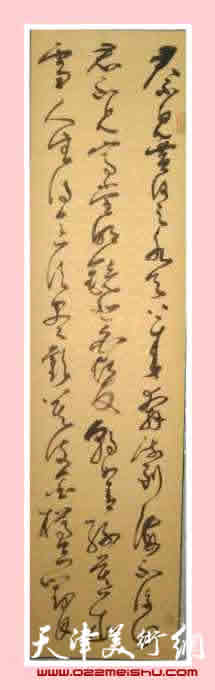 君不見黃河之水天上來奔流到海不復回
君不見高堂明鏡悲白髮朝如青絲暮成
雪人生得意須盡歡莫使金樽空對月
天津美術網
www.022meishu.com